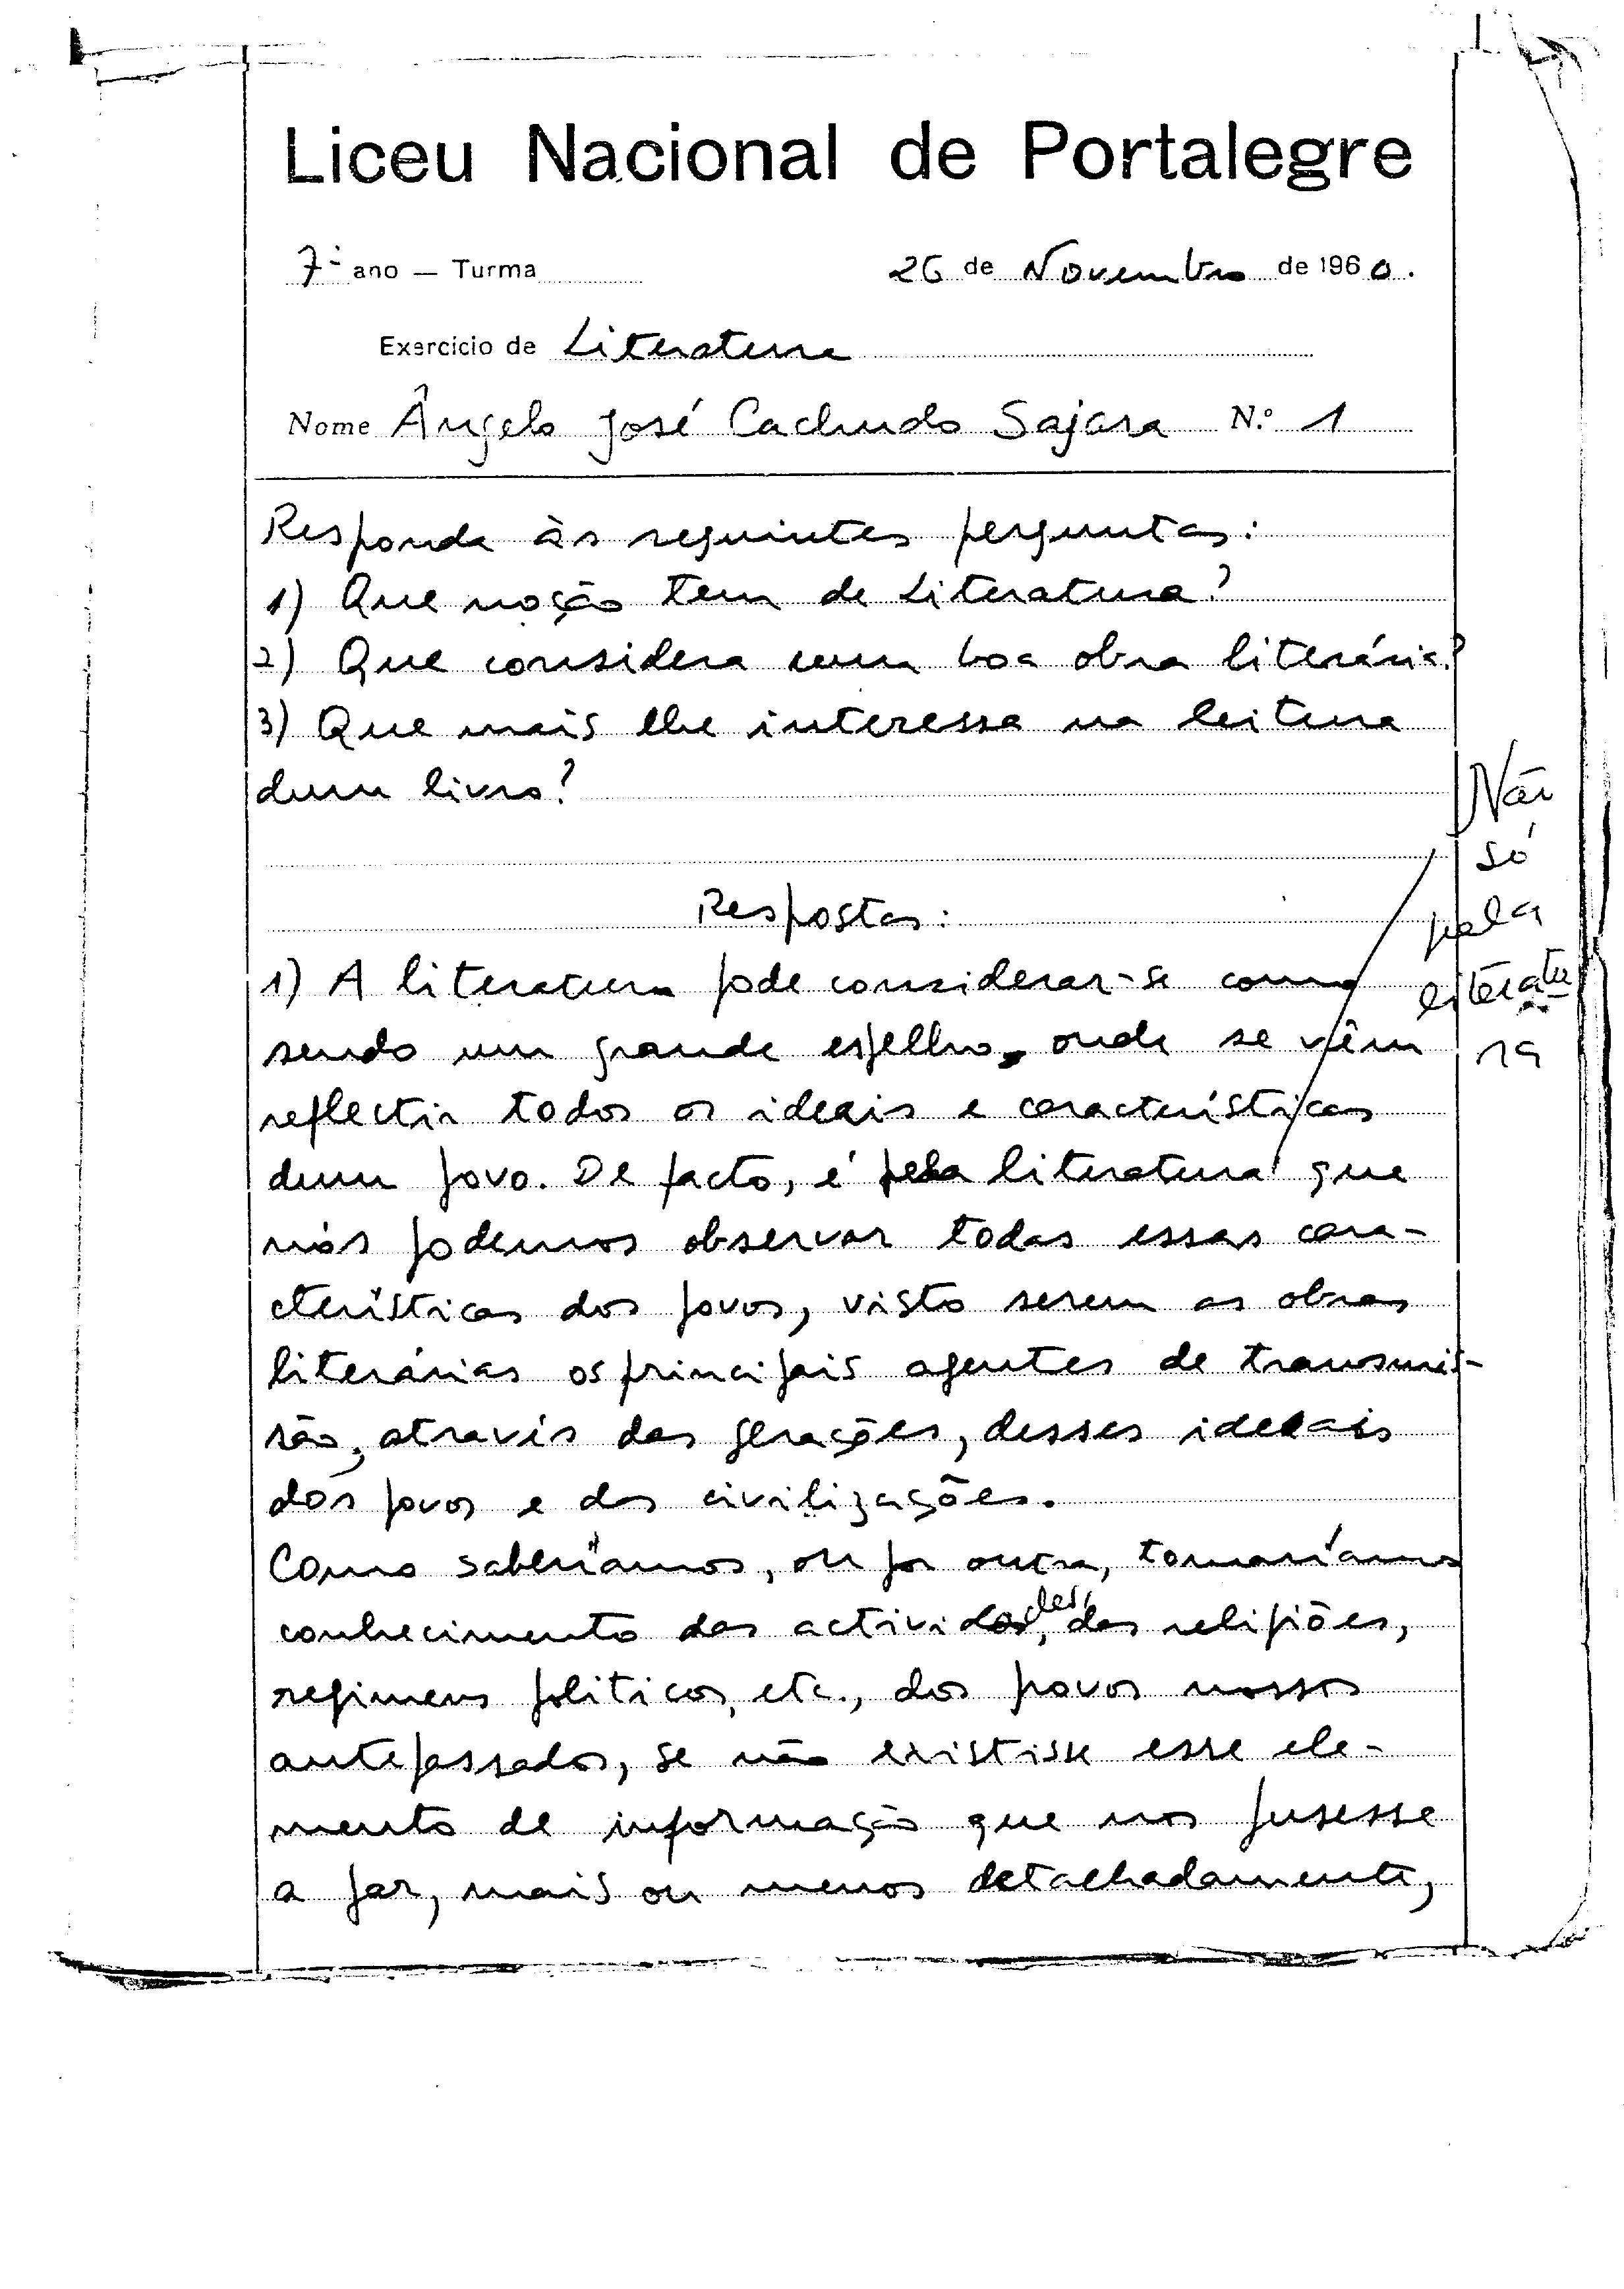 Liceu Nacional de Portalegre
7º ano — Turma
26 de Novembro de 1960.
Exercício de Literatura
Nome Ângelo José Cachudo Sajara N.º 1
Responda às seguintes perguntas:
1) Que noção tem de Literatura?
2) Que considera uma boa obra literária?
3) Que mais lhe interessa na leitura
dum livro?
Respostas:
1) A literatura pode considerar-se como
sendo um grande espelho, onde se vêm
reflectir todos os ideais e características
dum povo. De facto, é pela literatura que
nós podemos observar todas essas cara-
cterísticas dos povos, visto serem as obras
literárias os principais agentes de transmis-
são, através das gerações, desses ideais
dos povos e das civilizações.
Como saberíamos, ou por outra, tomaríamos
conhecimento das actividades, das religiões,
regimens políticos, etc., dos povos nossos
antepassados, se não existisse esse ele-
mento de informação que nos pusesse
a par, mais ou menos detalhadamente,
Não
só
pela
literatu
ra